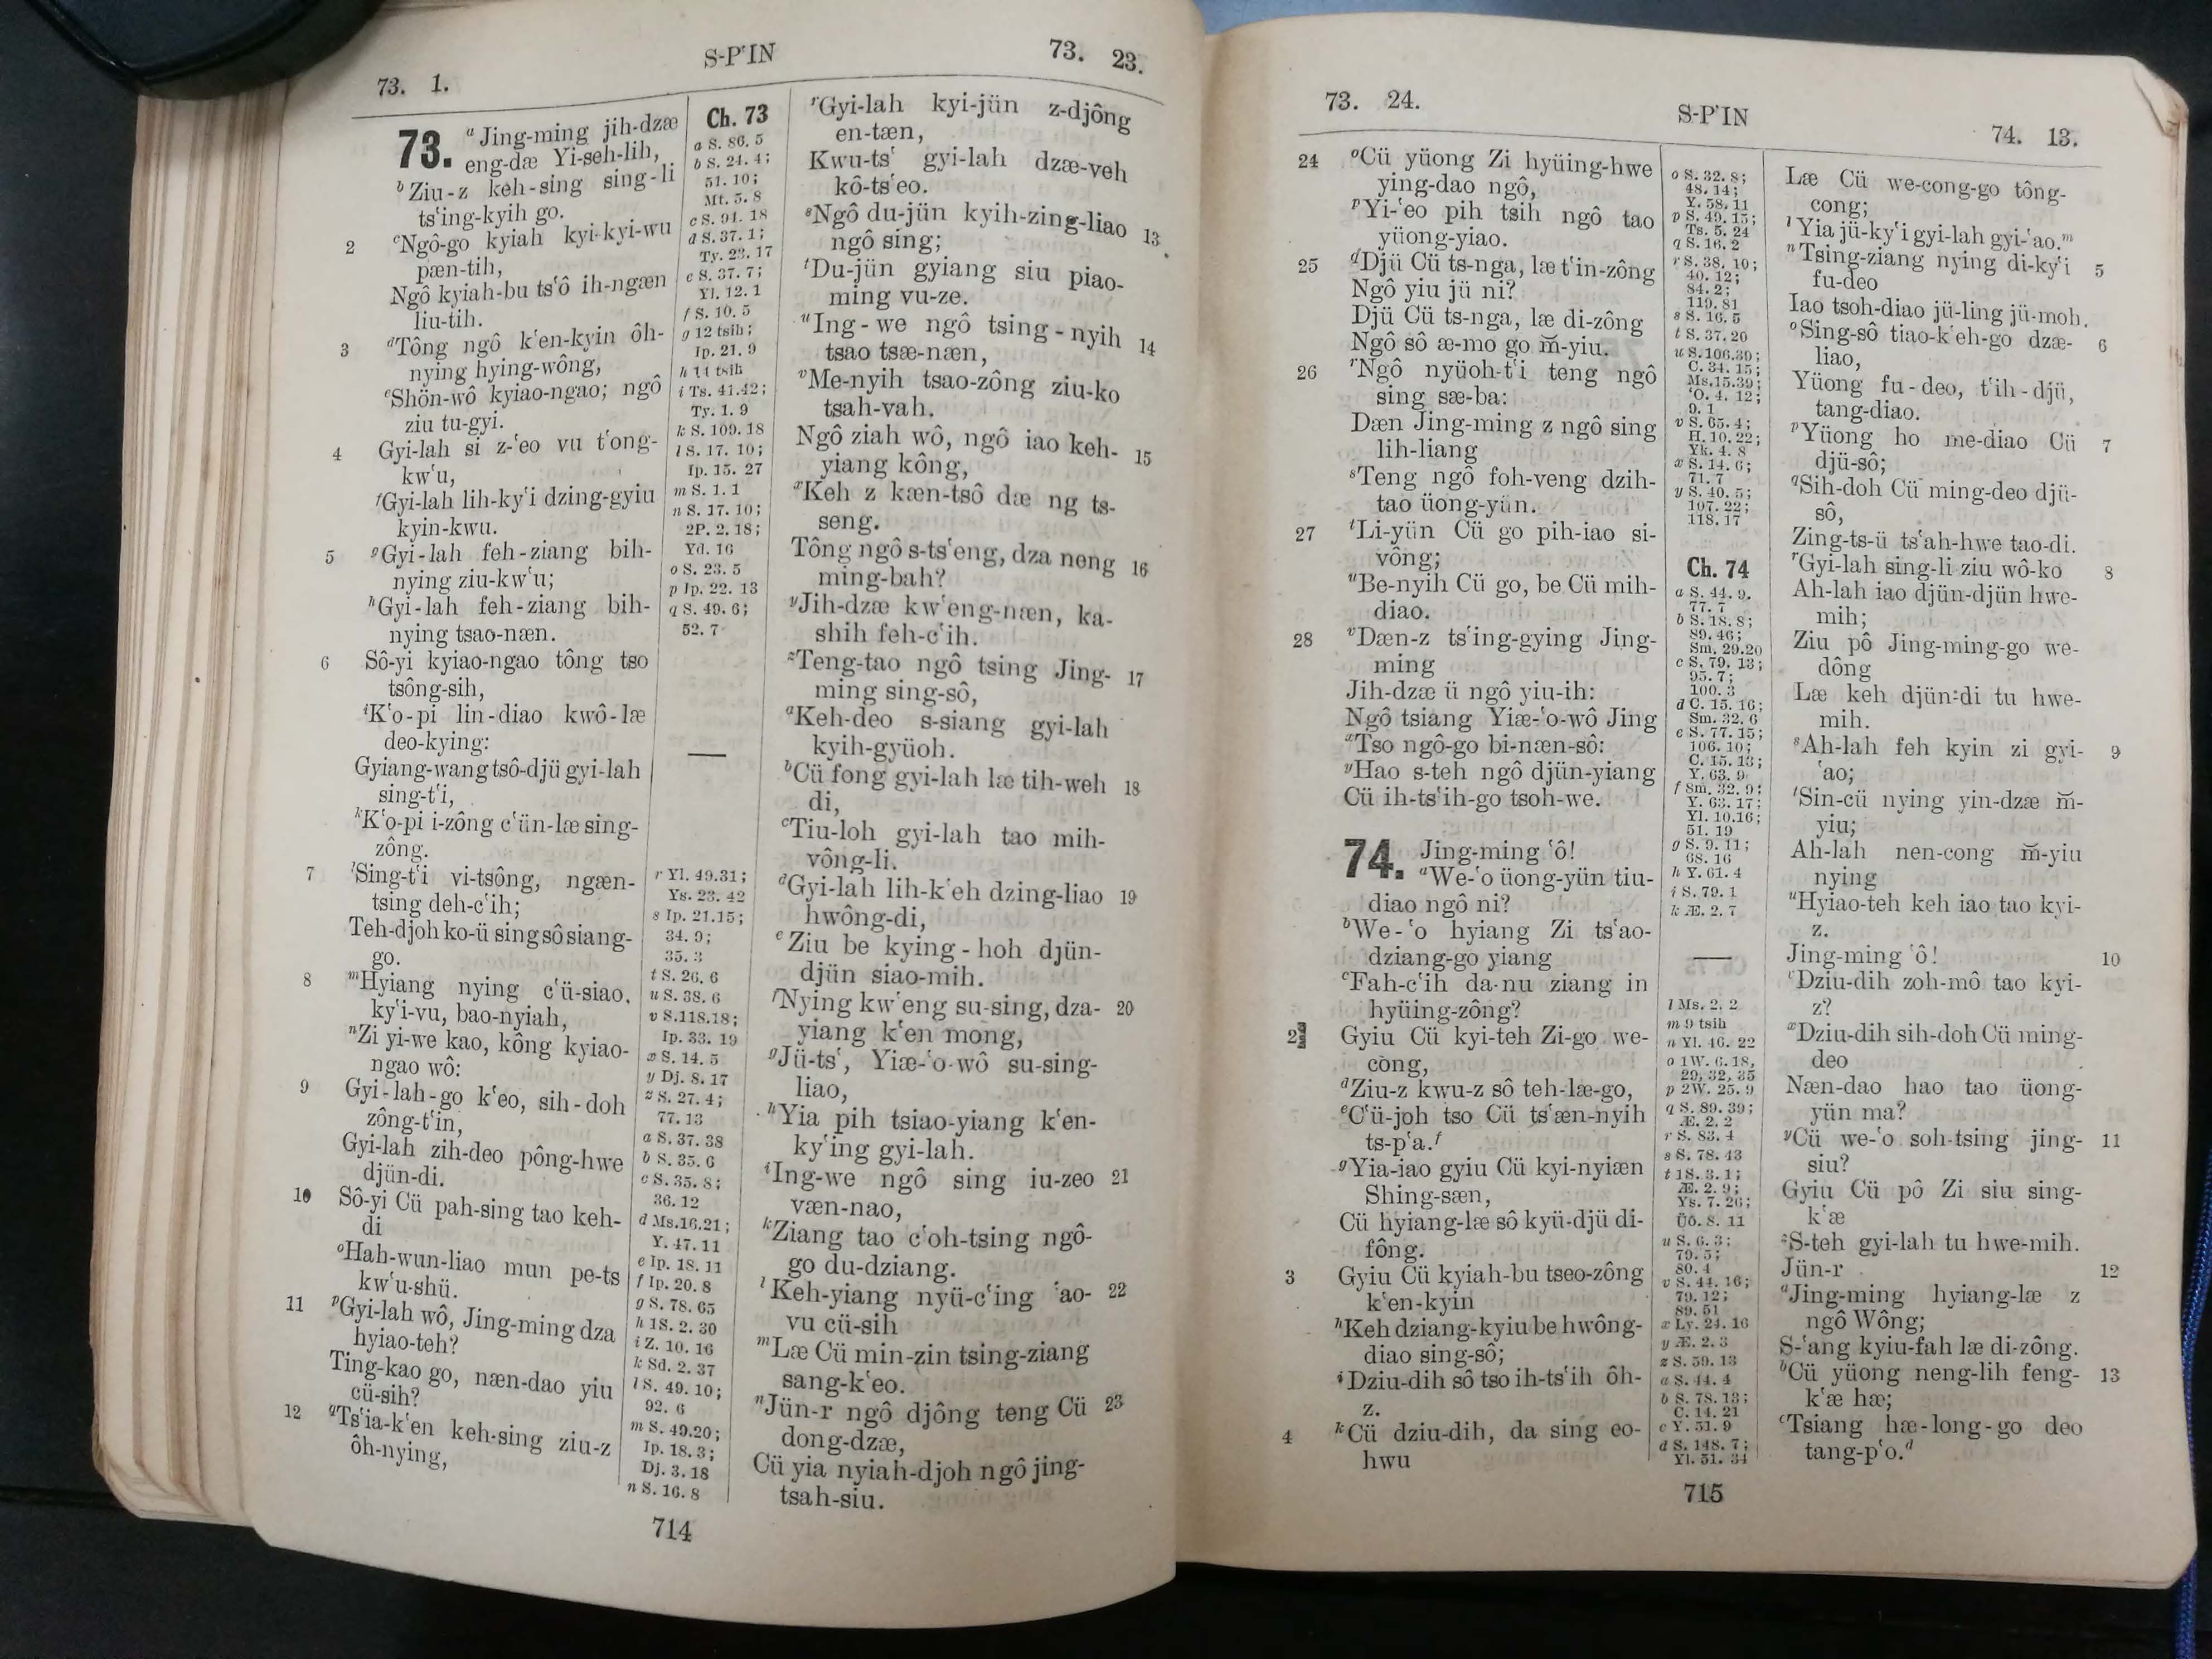 73. 1.
S-P‘IN
73. 23.
73. ᵃJing-ming jih-dzæ
eng-dæ Yi-seh-lih,
ᵇZiu-z keh-sing sing-li
ts‘ing-kyih go.
2 ᶜNgô-go kyiah kyi-kyi-wu
pæn-tih,
Ngô kyiah-bu ts‘ô ih-ngæn
liu-tih.
3 ᵈTông ngô k‘en-kyin ôh-
nying hying-wông,
ᵉShön-wô kyiao-ngao; ngô
ziu tu-gyi.
4 Gyi-lah si z-‘eo vu t‘ong-
kw‘u,
ᶠGyi-lah lih-ky‘i dzing-gyiu
kyin-kwu.
5 ᵍGyi-lah feh-ziang bih-
nying ziu-kw‘u;
ʰGyi-lah feh-ziang bih-
nying tsao-næn.
6 Sô-yi kyiao-ngao tông tso
tsông-sih,
ⁱK‘o-pi lin-diao kwô-læ
deo-kying:
Gyiang-wang tsô-djü gyi-lah
sing-t‘i,
ᵏK‘o-pi i-zông c‘ün-læ sing-
zông.
7 ˡSing-t‘i vi-tsông, ngæn-
tsing deh-c‘ih;
Teh-djoh ko-ü sing sô siang-
go.
8 ᵐHyiang nying c‘ü-siao,
ky‘i-vu, bao-nyiah,
ⁿZi yi-we kao, kông kyiao-
ngao wô:
9 Gyi-lah-go k‘eo, sih-doh
zông-t‘in,
Gyi-lah zih-deo pông-hwe
djün-di.
10 Sô-yi Cü pah-sing tao keh-
di
ᵒHah-wun-liao mun pe-ts
kw‘u-shü.
11 ᵖGyi-lah wô, Jing-ming dza
hyiao-teh?
Ting-kao go, næn-dao yiu
cü-sih?
12 ᵠTs‘ia-k‘en keh-sing ziu-z
ôh-nying,
Ch. 73
a S. 86. 5
b S. 24. 4;
51. 10;
Mt. 5. 8
c S. 94. 18
d S. 37. 1;
Ty. 23. 17
e S. 37. 7;
Yl. 12. 1
f S. 10. 5
g 12 tsih;
Ip. 21. 9
h 14 tsih
i Ts. 41.42;
Ty. 1. 9
k S. 109. 18
l S. 17. 10;
Ip. 15. 27
m S. 1. 1
n S. 17. 10;
2P. 2. 18;
Yd. 16
o S. 23. 5
p Ip. 22. 13
q S. 49. 6;
52. 7
r Yl. 49.31;
Ys. 23. 42
s Ip. 21.15;
34. 9;
35. 3
t S. 26. 6
u S. 38. 6
v S.118.18;
Ip. 33. 19
x S. 14. 5
y Dj. 8. 17
z S. 27. 4;
77. 13
a S. 37. 38
b S. 35. 6
c S. 35. 8;
36. 12
d Ms.16.21;
Y. 47. 11
e Ip. 18. 11
f Ip. 20. 8
g S. 78. 65
h 1S. 2. 30
i Z. 10. 16
k Sd. 2. 37
l S. 49. 10;
92. 6
m S. 49.20;
Ip. 18. 3;
Dj. 3. 18
n S. 16. 8
ʳGyi-lah kyi-jün z-djông
en-tæn,
Kwu-ts‘ gyi-lah dzæ-veh
kô-ts‘eo.
ˢNgô du-jün kyih-zing-liao 13
ngô sing;
ᵗDu-jün gyiang siu piao-
ming vu-ze.
ᵘIng-we ngô tsing-nyih 14
tsao tsæ-næn,
ᵛMe-nyih tsao-zông ziu-ko
tsah-vah.
Ngô ziah wô, ngô iao keh- 15
yiang kông,
ˣKeh z kæn-tsô dæ ng ts-
seng.
Tông ngô s-ts‘eng, dza neng 16
ming-bah?
ʸJih-dzæ kw‘eng-næn, ka-
shih feh-c‘ih.
ᶻTeng-tao ngô tsing Jing- 17
ming sing-sô,
ᵃKeh-deo s-siang gyi-lah
kyih-gyüoh.
ᵇCü fong gyi-lah læ tih-weh 18
di,
ᶜTiu-loh gyi-lah tao mih-
vông-li.
ᵈGyi-lah lih-k‘eh dzing-liao 19
hwông-di,
ᵉZiu be kying-hoh djün-
djün siao-mih.
ᶠNying kw‘eng su-sing, dza- 20
yiang k‘en mong,
ᵍJü-ts‘, Yiæ-‘o-wô su-sing-
liao,
ʰYia pih tsiao-yiang k‘en-
ky‘ing gyi-lah.
ⁱIng-we ngô sing iu-zeo 21
væn-nao,
ᵏZiang tao c‘oh-tsing ngô-
go du-dziang.
ˡKeh-yiang nyü-c‘ing ‘ao- 22
vu cü-sih
ᵐLæ Cü min-zin tsing-ziang
sang-k‘eo.
ⁿJün-r ngô djông teng Cü 23
dong-dzæ,
Cü yia nyiah-djoh ngô jing-
tsah-siu.
714
73. 24.
S-P‘IN
74. 13.
24 ᵒCü yüong Zi hyüing-hwe
ying-dao ngô,
ᵖYi-‘eo pih tsih ngô tao
yüong-yiao.
25 ᵠDjü Cü ts-nga, læ t‘in-zông
Ngô yiu jü ni?
Djü Cü ts-nga, læ di-zông
Ngô sô æ-mo go m̆-yiu.
26 ʳNgô nyüoh-t‘i teng ngô
sing sæ-ba:
Dæn Jing-ming z ngô sing
lih-liang
ˢTeng ngô foh-veng dzih-
tao üong-yün.
27 ᵗLi-yün Cü go pih-iao si-
vông;
ᵘBe-nyih Cü go, be Cü mih-
diao.
28 ᵛDæn-z ts‘ing-gying Jing-
ming
Jih-dzæ ü ngô yiu-ih:
Ngô tsiang Yiæ-‘o-wô Jing
ˣTso ngô-go bi-næn-sô:
ʸHao s-teh ngô djün-yiang
Cü ih-ts‘ih-go tsoh-we.
74. Jing-ming ‘ô!
ᵃWe-‘o üong-yün tiu-
diao ngô ni?
ᵇWe-‘o hyiang Zi ts‘ao-
dziang-go yiang
ᶜFah-c‘ih da-nu ziang in
hyüing-zông?
2 Gyiu Cü kyi-teh Zi-go we-
cong,
ᵈZiu-z kwu-z sô teh-læ-go,
ᵉC‘ü-joh tso Cü ts‘æn-nyih
ts-p‘a.ᶠ
ᵍYia-iao gyiu Cü kyi-nyiæn
Shing-sæn,
Cü hyiang-læ sô kyü-djü di-
fông.
3 Gyiu Cü kyiah-bu tseo-zông
k‘en-kyin
ʰKeh dziang-kyiu be hwông-
diao sing-sô;
ⁱDziu-dih sô tso ih-ts‘ih ôh-
z.
4 ᵏCü dziu-dih, da sing eo-
hwu
o S. 32. 8;
48. 14;
Y. 58. 11
p S. 49. 15;
Ts. 5. 24
q S. 16. 2
r S. 38. 10;
40. 12;
84. 2;
119. 81
s S. 16. 5
t S. 37. 20
u S.106.39;
C. 34. 15;
Ms.15.39;
‘O. 4. 12;
9. 1
v S. 65. 4;
H. 10. 22;
Yk. 4. 8
x S. 14. 6;
71. 7
y S. 40. 5;
107. 22;
118. 17
Ch. 74
a S. 44. 9.
77. 7
b S. 18. 8;
89. 46;
Sm. 29.20
c S. 79. 13;
95. 7;
100. 3
d C. 15. 16;
Sm. 32. 6
e S. 77. 15;
106. 10;
C. 15. 13;
Y. 63. 9
f Sm. 32. 9;
Y. 63. 17;
Yl. 10.16;
51. 19
g S. 9. 11;
68. 16
h Y. 61. 4
i S. 79. 1
k Æ. 2. 7
l Ms. 2. 2
m 9 tsih
n Yl. 46. 22
o 1W. 6. 18,
29, 32, 35
p 2W. 25. 9
q S. 89. 39;
Æ. 2. 2
r S. 83. 4
s S. 78. 43
t 1S. 3. 1;
Æ. 2. 9;
Ys. 7. 26;
Üô. 8. 11
u S. 6. 3;
79. 5;
80. 4
v S. 44. 16;
79. 12;
89. 51
x Ly. 24. 16
y Æ. 2. 3
z S. 59. 13
a S. 44. 4
b S. 78. 13;
C. 14. 21
c Y. 51. 9
d S. 148. 7;
Yl. 51. 34
Læ Cü we-cong-go tông-
cong;
ˡYia jü-ky‘i gyi-lah gyi-‘ao.ᵐ
ⁿTsing-ziang nying di-ky‘i 5
fu-deo
Iao tsoh-diao jü-ling jü-moh.
ᵒSing-sô tiao-k‘eh-go dzæ- 6
liao,
Yüong fu-deo, t‘ih-djü,
tang-diao.
ᵖYüong ho me-diao Cü 7
djü-sô;
ᵠSih-doh Cü ming-deo djü-
sô,
Zing-ts-ü ts‘ah-hwe tao-di.
ʳGyi-lah sing-li ziu wô-ko 8
Ah-lah iao djün-djün hwe-
mih;
Ziu pô Jing-ming-go we-
dông
Læ keh djün-di tu hwe-
mih.
ˢAh-lah feh kyin zi gyi- 9
‘ao;
ᵗSin-cü nying yin-dzæ m̆-
yiu;
Ah-lah nen-cong m̆-yiu
nying
ᵘHyiao-teh keh iao tao kyi-
z.
Jing-ming ‘ô! 10
ᵛDziu-dih zoh-mô tao kyi-
z?
ˣDziu-dih sih-doh Cü ming-
deo
Næn-dao hao tao üong-
yün ma?
ʸCü we-‘o soh-tsing jing- 11
siu?
Gyiu Cü pô Zi siu sing-
k‘æ
ᶻS-teh gyi-lah tu hwe-mih.
Jün-r 12
ᵃJing-ming hyiang-læ z
ngô Wông;
S-‘ang kyiu-fah læ di-zông.
ᵇCü yüong neng-lih feng- 13
k‘æ hæ;
ᶜTsiang hæ-long-go deo
tang-p‘o.ᵈ
715